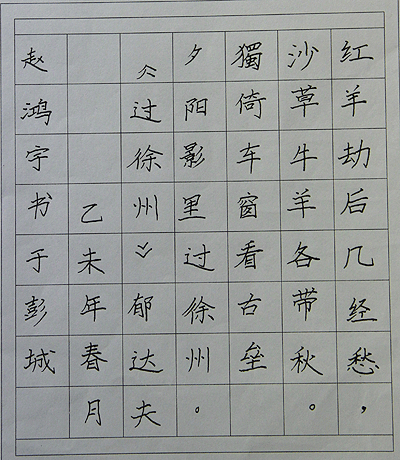 红羊劫后几经愁，
沙草牛羊各带秋。
獨倚车窗看古垒
夕阳影里过徐州。
《过徐州》郁达夫
乙未年春月
赵鸿宇书于彭城